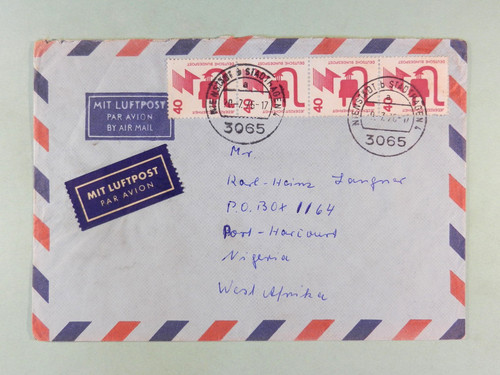 MIT LUFTPOST
PAR AVION
BY AIR MAIL
MIT LUFTPOST
PAR AVION
40
DEUTSCHE BUNDESPOST
40
40
DEUTSCHE BUNDESPOST
40
NIENSTÄDT b STADTHAGEN
3065
NIENSTÄDT b STADTHAGEN
3065
Mr.
Karl-Heinz Langner
P.O. BOX 1164
Port-Harcourt
Nigeria
West Afrika